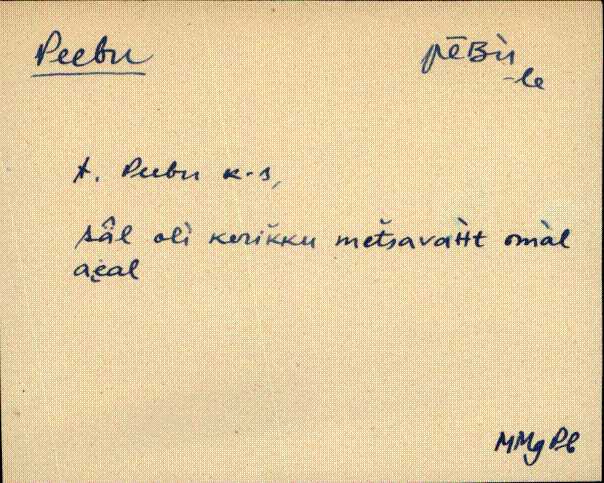 Peebu pēBù
-le
t. Peebu k-s,
säl olì kerikku metsavaìtt omàl
aẹal
MMg Pb